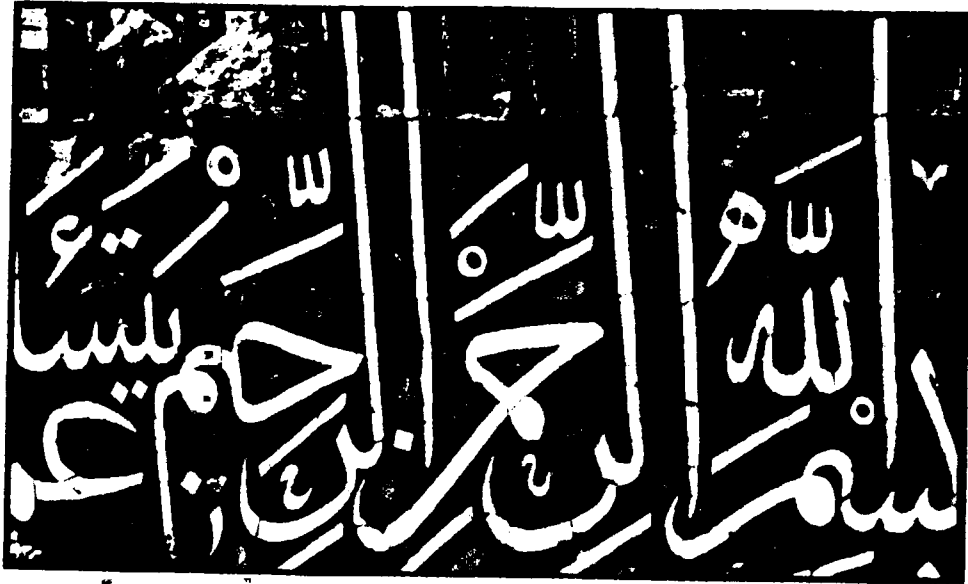 بِسْمِ اللَّهِ الرَّحْمنِ الرَّحِيمِ عَمَّ يَتَسَاءَ